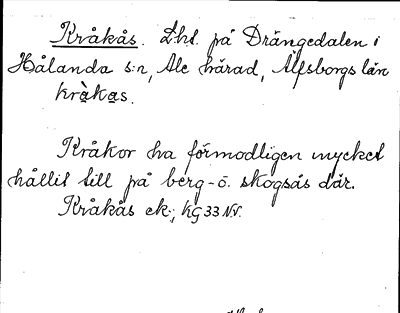 Kråkås. Lht. på Drängedalen i
Hålanda s:n, Ale härad, Älfsborgs län
kràkas.
Kråkor ha förmodligen mycket
hållit till på berg- o. skogsås där.
Kråkås ek., KG 33 NV.